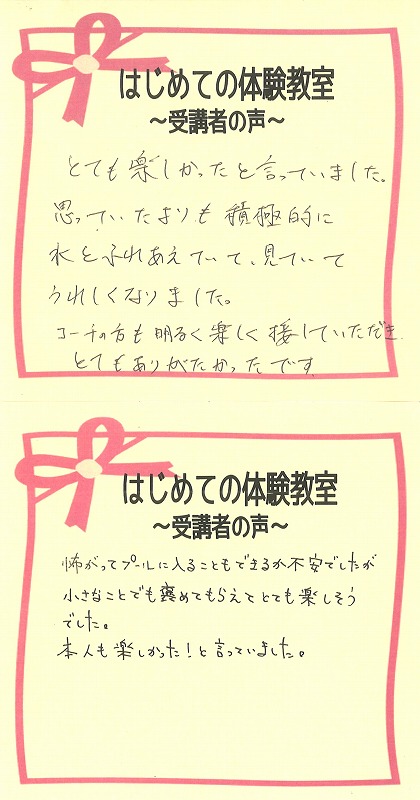 はじめての体験教室
～受講者の声～
とても楽しかったと言っていました。
思っていたよりも積極的に
水とふれあえていて、見ていて
うれしくなりました。
コーチの方も明るく楽しく接していただき
とてもありがたかったです
はじめての体験教室
～受講者の声～
怖がってプールに入ることもできるか不安でしたが
小さなことでも褒めてもらえてとても楽しそう
でした。
本人も楽しかった！と言っていました。